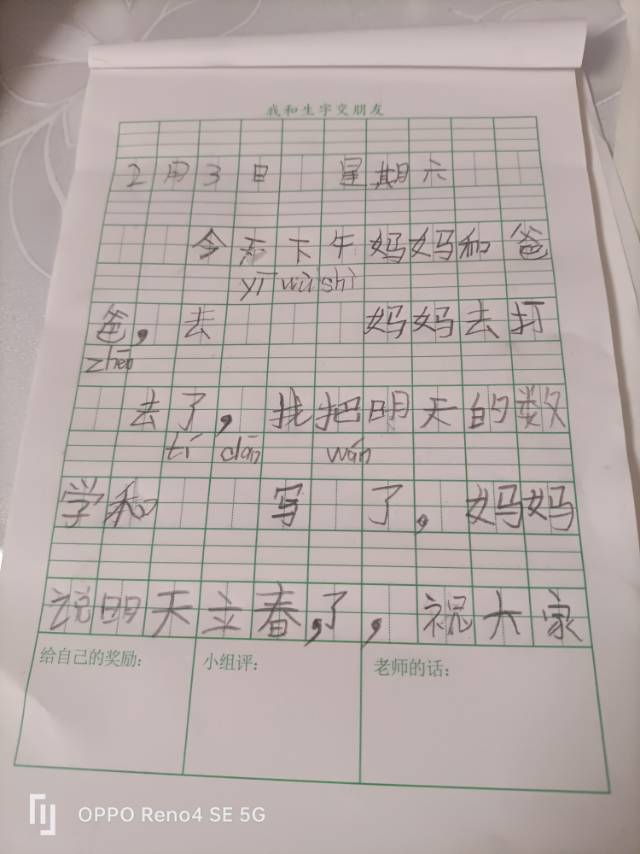 我和生字交朋友
2月3日 星期六
今天下午妈妈和爸
yī wù shì
爸，去 妈妈去打
zhēn
去了，我把明天的数
tí dān wán
学和 写 了，妈妈
说明天立春，了，祝大家
给自己的奖励：
小组评：
老师的话：
OPPO Reno4 SE 5G